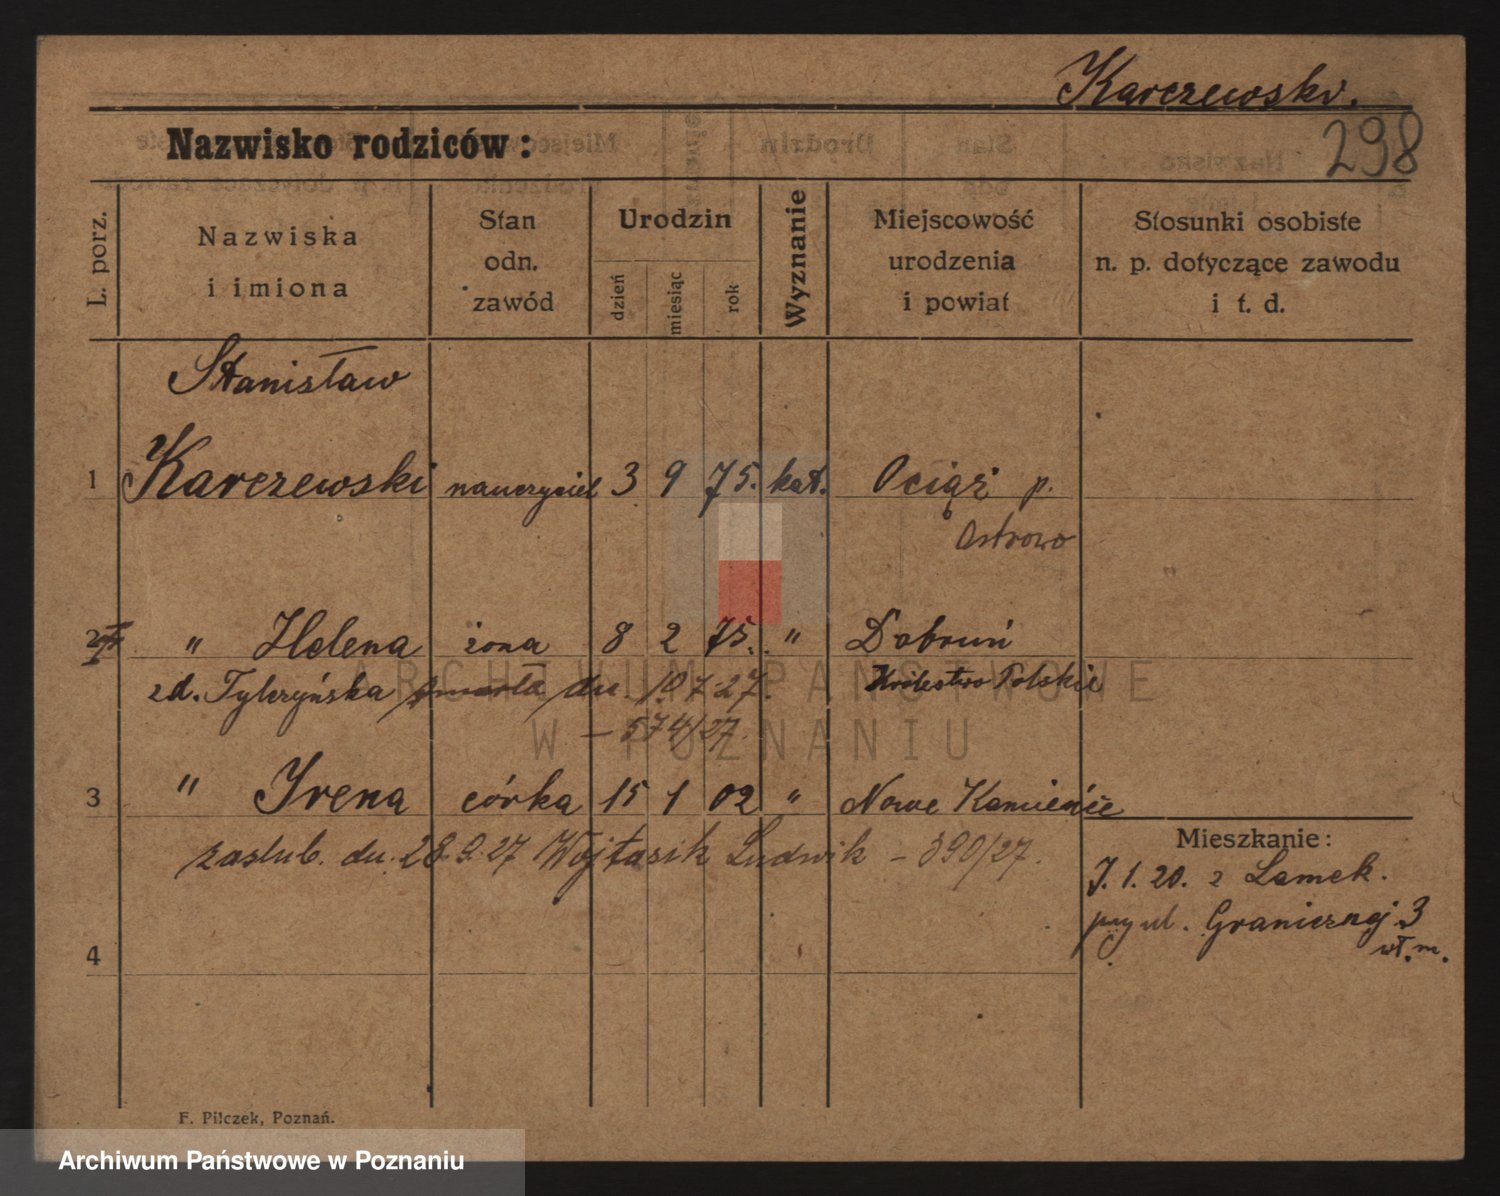 Karczewski.
298
Nazwisko rodziców:
L. porz.
Nazwiska
i imiona
Stan
odn.
zawód
Urodzin
dzień
miesiąc
rok
Wyznanie
Miejscowość
urodzenia
i powiat
Stosunki osobiste
n. p. dotyczące zawodu
i t. d.
Stanisław
1 Karczewski nauczyciel 3 9 75. kat. Ociąż p.
Ostrowo
2 " Helena żona 8 2 75. " Dobruń
zd. Tylczyńska zmarła dn. 10 7 27. Królestwo Polskie
– 574/27.
3 " Irena córka 15 1 02 " Nowe Kamieńcie
zaślub. dn. 28.9.27 Wojtasik Ludwik – 390/27.
Mieszkanie:
J. 1. 20. z Lamek.
przy ul. Granicznej 3
wł. m.
4
F. Pilczek, Poznań.
ARCHIWUM PAŃSTWOWE
W POZNANIU
Archiwum Państwowe w Poznaniu